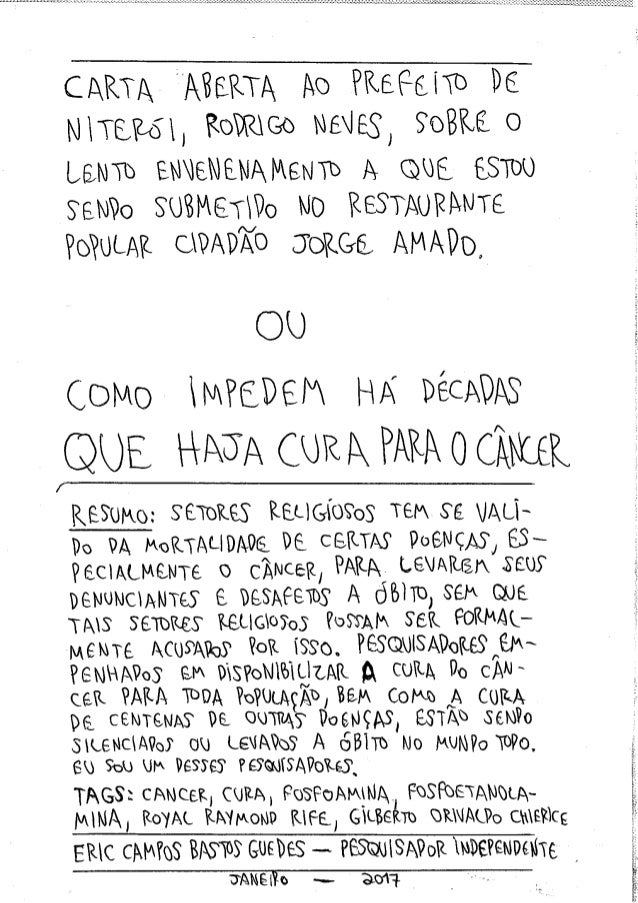 CARTA ABERTA AO PREFEITO DE
NITERÓI, RODRIGO NEVES, SOBRE O
LENTO ENVENENAMENTO A QUE ESTOU
SENDO SUBMETIDO NO RESTAURANTE
POPULAR CIDADÃO JORGE AMADO.
OU
COMO IMPEDEM HÁ DÉCADAS
QUE HAJA CURA PARA O CÂNCER
RESUMO: SETORES RELIGIOSOS TEM SE VALI-
DO DA MORTALIDADE DE CERTAS DOENÇAS, ES-
PECIALMENTE O CÂNCER, PARA LEVAREM SEUS
DENUNCIANTES E DESAFETOS A ÓBITO, SEM QUE
TAIS SETORES RELIGIOSOS POSSAM SER FORMAL-
MENTE ACUSADOS POR ISSO. PESQUISADORES EM-
PENHADOS EM DISPONIBILIZAR A CURA DO CÂN-
CER PARA TODA POPULAÇÃO, BEM COMO A CURA
DE CENTENAS DE OUTRAS DOENÇAS, ESTÃO SENDO
SILENCIADOS OU LEVADOS A ÓBITO NO MUNDO TODO.
EU SOU UM DESSES PESQUISADORES.
TAGS: CANCER, CURA, FOSFOAMINA, FOSFOETANOLA-
MINA, ROYAL RAYMOND RIFE, GILBERTO ORIVALDO CHIERICE
ERIC CAMPOS BASTOS GUEDES — PESQUISADOR INDEPENDENTE
JANEIRO — 2017